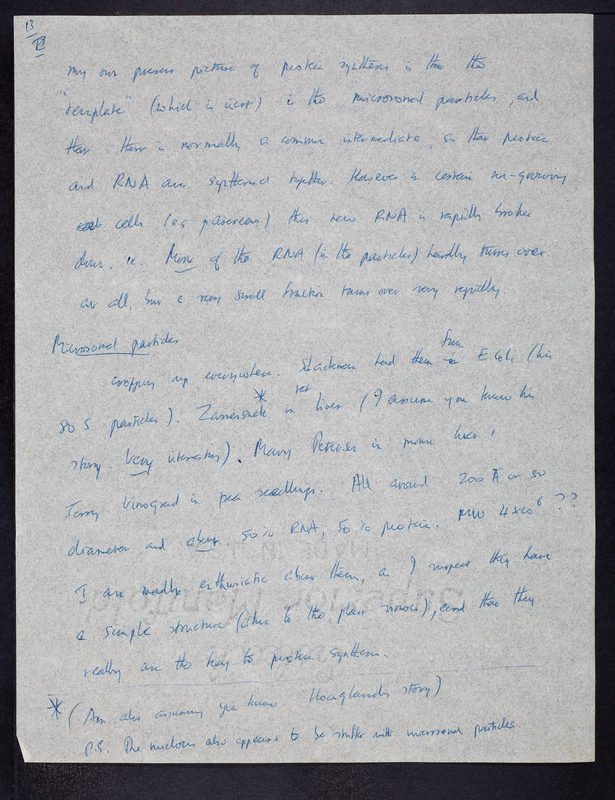 13
my own present picture of protein synthesis is that the
"template" (which is inert) is the microsomal particles, and
that there is normally a common intermediate, so that protein
and RNA are synthesised together. However in certain non-growing
cells (eg pancreas) this new RNA is rapidly broken
down. ie. Most of the RNA (in the particles) hardly turns over
at all, but a very small fraction turns over very rapidly.
Microsomal particles
cropping up everywhere. Schachman had them from E Coli (his
80 S particles). Zamecnik * in rat liver (I assume you know his
story Very interesting). Mary Petermann in mouse liver,
Jerry Vinograd in pea seedlings. All around 200 Å or so
diameter and about 50% RNA, 50% protein. MW 4×10⁶ ??
I am madly enthusiastic about them, as I suspect they have
a simple structure (like to the plant viruses), and that they
really are the key to protein synthesis.
* (Am also assuming you know Hoagland's story)
P.S. The nucleus also appears to be stuffed with microsomal particles